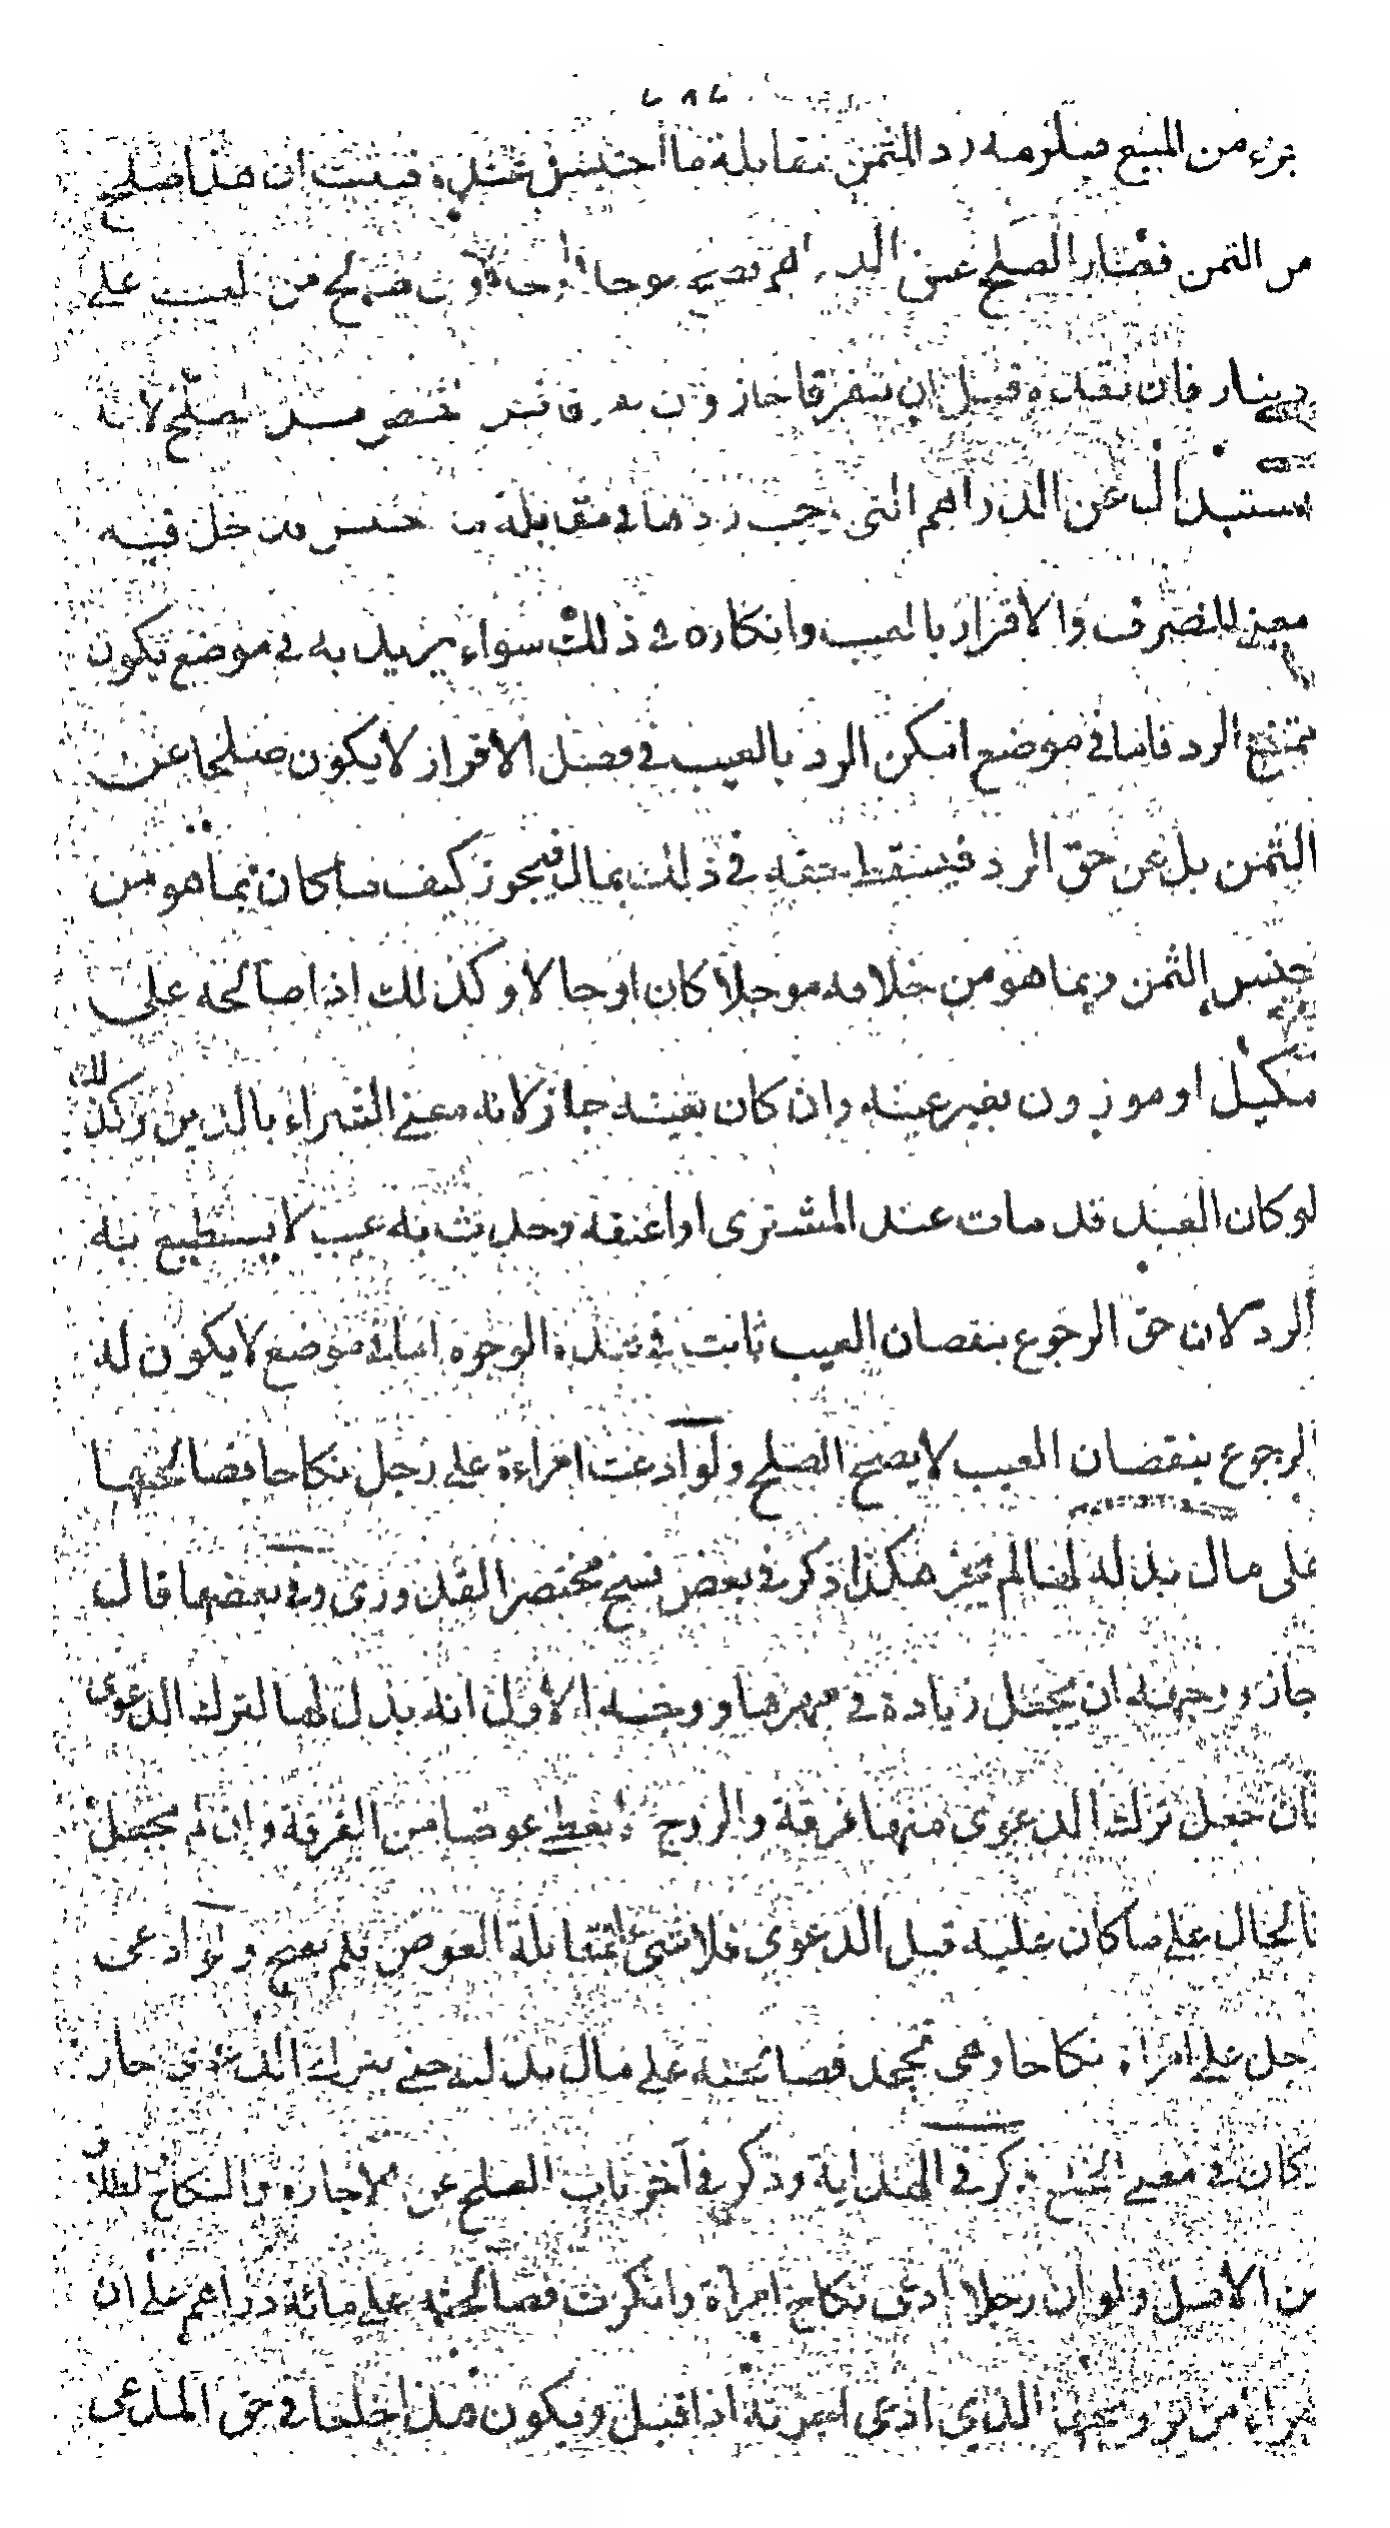 ٢٨٢
برء من المبيع فيلزمه رد الثمن بمقابلة ما احتبس عنده فيثبت ان هذا صلح
من الثمن فصار الصلح عن الدراهم
دينار فان نقده قبل ان يتفرقا جاز وان الصلح لانه
استبدال عن الدراهم التي يجب ردها في مقابلة ما احتبس فدخل فيه
معنى الصرف والاقرار بالعيب وانكاره في ذلك سواء يريد به في موضع يكون
يمتنع الرد فاما في موضع امكن الرد بالعيب في فصل الاقرار لا يكون صلحا عن
الثمن بل عن حق الرد فيسقط حقه في ذلك بمال فيجوز كيف ما كان بما هو من
جنس الثمن وبما هو من خلافه موجلا كان او حالا وكذلك اذا صالحه على
مكيل او موزون بغير عينه وان كان بعينه جاز لانه معنى الشراء بالدين وكذلك
لو كان العبد قد مات عند المشتري او اعتقه وحدث به عيب لا يستطيع به
الرد لان حق الرجوع بنقصان العيب ثابت في هذه الوجوه اما في موضع لا يكون له
الرجوع بنقصان العيب لا يصح الصلح ولو ادعت امراءة على رجل نكاحا فصالحها
على مال بذله لها لم يجز هكذا ذكر في بعض نسخ مختصر القدوري وفي بعضها قال
جاز ووجهه ان يجعل زيادة في مهرها ووجه الاول انه بذل لها لترك الدعوى
فان جعل ترك الدعوى منها فرقة والزوج لا يعط عوضا من الفرقة وان لم يجعل
فالحال على ما كان عليه قبل الدعوى فلا شئ بمقابلة العوض فلم يصح ولو ادعى
رجل على امراة نكاحا وهى تجحد فصالحته على مال بذلته حتى يترك الدعوى جاز
وكان في معنى الخلع ذكر في الهداية وذكر في آخر باب الصلح عن الاجارة والنكاح والطلاق
من الاصل ولو ان رجلا ادعى نكاح امراة وانكرت فصالحته على مائة دراهم على ان
الذي ادعى اذا قبل ويكون هذا خلعا في حق المدعى